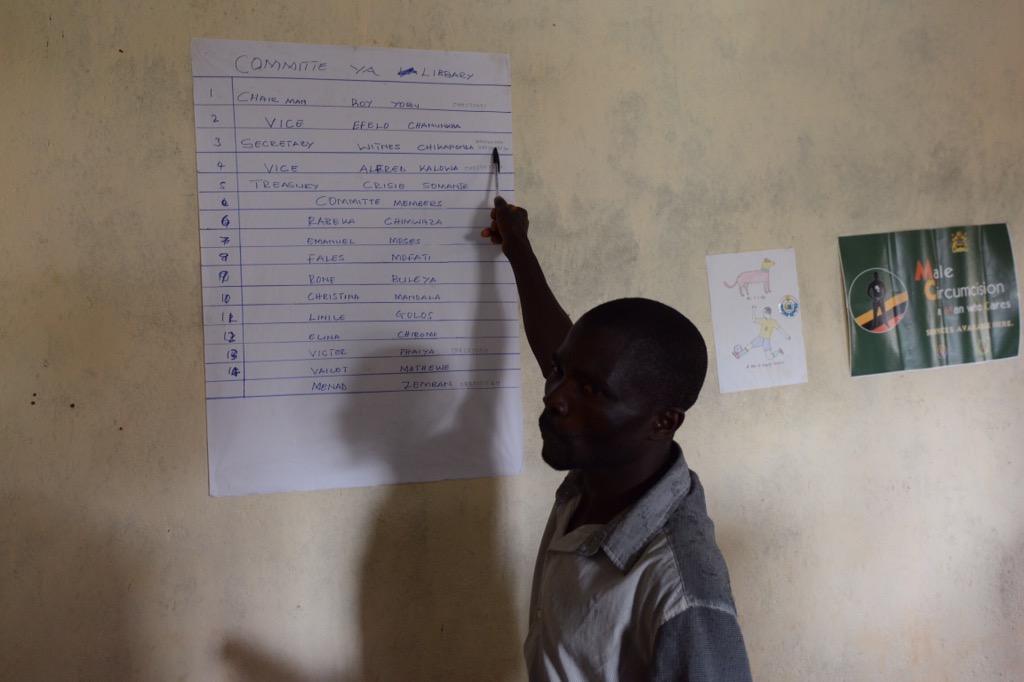 COMMITTE YA LIBRARY
1 CHAIR MAN ROY YOBU
2 VICE EFELO CHAMUNKHA
3 SECRETARY WITNES CHIKAPOMBA
4 VICE ALFRED KALOWA
5 TREASURY CRISIE SOMANJE
6 COMMITTE MEMBERS
6 RABEKA CHIMWAZA
7 EMANUEL MOSES
8 FALES MOFATI
9 RONE BULEYA
10 CHRISTINA MANDALA
11 LINILE GOLOS
12 ELINA CHIRONE
13 VICTOR PHAIYA
14 VAILOT MATHEWE
MENAD ZEMBANI
Male
Circumcision
A Man who Cares
SERVICES AVAILABLE HERE.